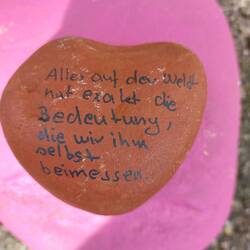 Alles auf der Welt
hat exakt die
Bedeutung,
die wir ihm
selbst
beimessen.